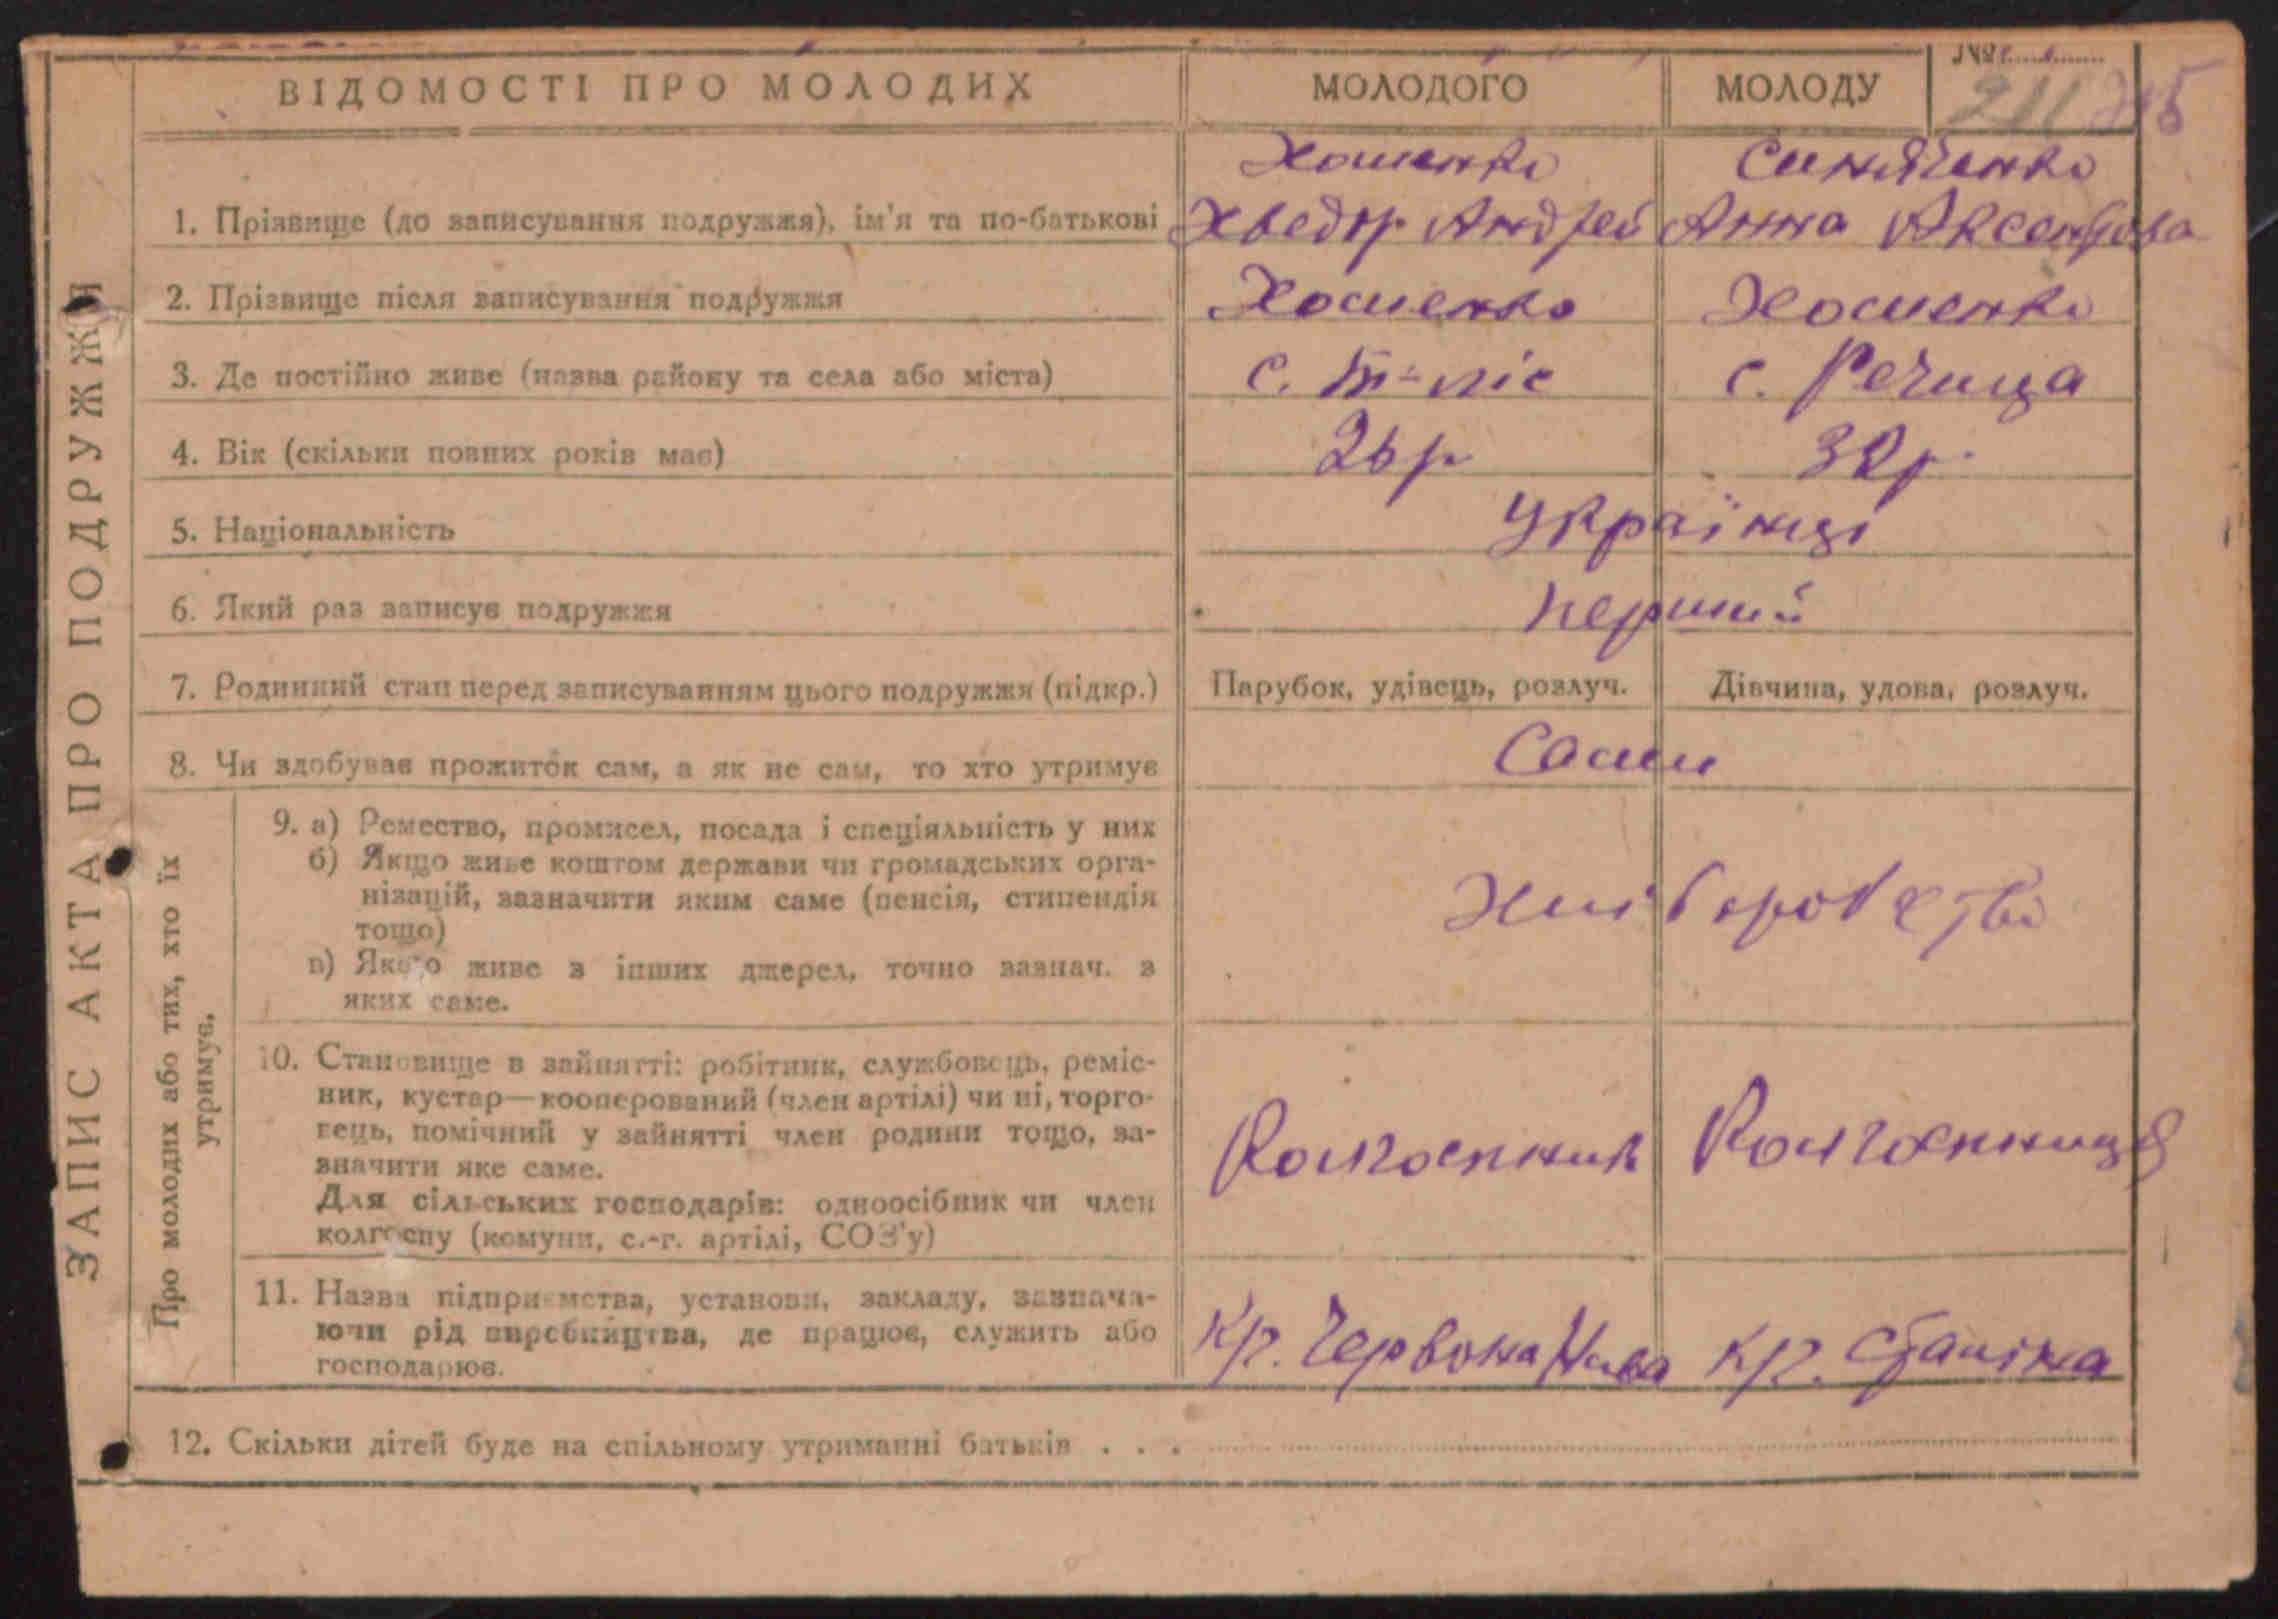 ЗАПИС АКТА ПРО ПОДРУЖЖЯ
ВІДОМОСТІ ПРО МОЛОДИХ
МОЛОДОГО
МОЛОДУ
№
211
1. Прізвище (до записування подружжя), ім'я та по-батькові
Хоменко
Хведір Андрей
Синяченко
Анна Аксентова
2. Прізвище після записування подружжя
Хоменко
Хоменко
3. Де постійно живе (назва району та села або міста)
с.
с. Речица
4. Вік (скільки повних років має)
26 р
32 р.
5. Національність
Українці
6. Який раз записує подружжя
перший
7. Родинний стан перед записуванням цього подружжя (підкр.)
Парубок, удівець, розлуч.
Дівчина, удова, розлуч.
8. Чи здобуває прожиток сам, а як не сам, то хто утримує
Сами
Про молодих або тих, хто їх
утримує.
9. а) Ремество, промисел, посада і спеціяльність у них
б) Якщо живе коштом держави чи громадських орга-
нізацій, зазначити яким саме (пенсія, стипендія
тощо)
в) Якщо живе з інших джерел, точно зазнач. з
яких саме.
Хліборобство
10. Становище в зайнятті: робітник, службовець, реміс-
ник, кустар—кооперований (член артілі) чи ні, торго-
вець, помічний у зайнятті член родини тощо, за-
значити яке саме.
Для сільських господарів: одноосібник чи член
колгоспу (комуни, с.-г. артілі, СОЗ'у)
Колгоспник
Колгоспниця
11. Назва підприємства, установи, закладу, зазнача-
ючи рід виробництва, де працює, служить або
господарює.
Кр. Червона Нива
Кр. Сталіна
12. Скільки дітей буде на спільному утриманні батьків . . .